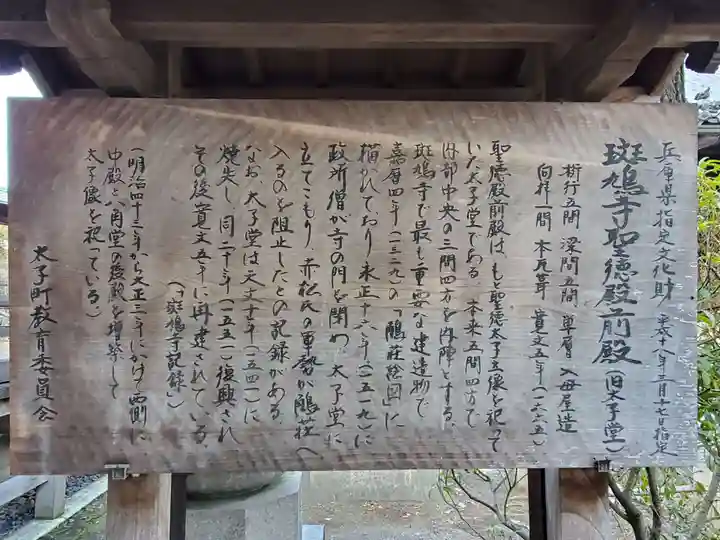 兵庫県指定文化財 平成十八年三月十七日指定
斑鳩寺聖徳殿前殿(旧太子堂)
桁行五間 梁間五間 単層 入母屋造
向拝一間 本瓦葺 寛文五年(一六六五)
聖徳殿前殿は、もと聖徳太子立像を祀って
いた太子堂である。本来五間四方で
内部中央の三間四方を内陣とする。
斑鳩寺で最も重要な建造物で
嘉暦四年(一三二九)の「鵤荘絵図」に
描かれており、永正十六年(一五一九)に
政所僧が寺の門を閉め、太子堂に
立てこもり、赤松氏の軍勢が鵤荘へ
入るのを阻止したとの記録がある。
なお、太子堂は天文十年(一五四一)に
焼失し、同二十年(一五五一)復興され
その後、寛文五年に再建されている。
(「斑鳩寺記録」)
(明治四十三年から大正三年にかけて西側に
中殿と八角堂の後殿を増築して
太子像を祀っている)
太子町教育委員会